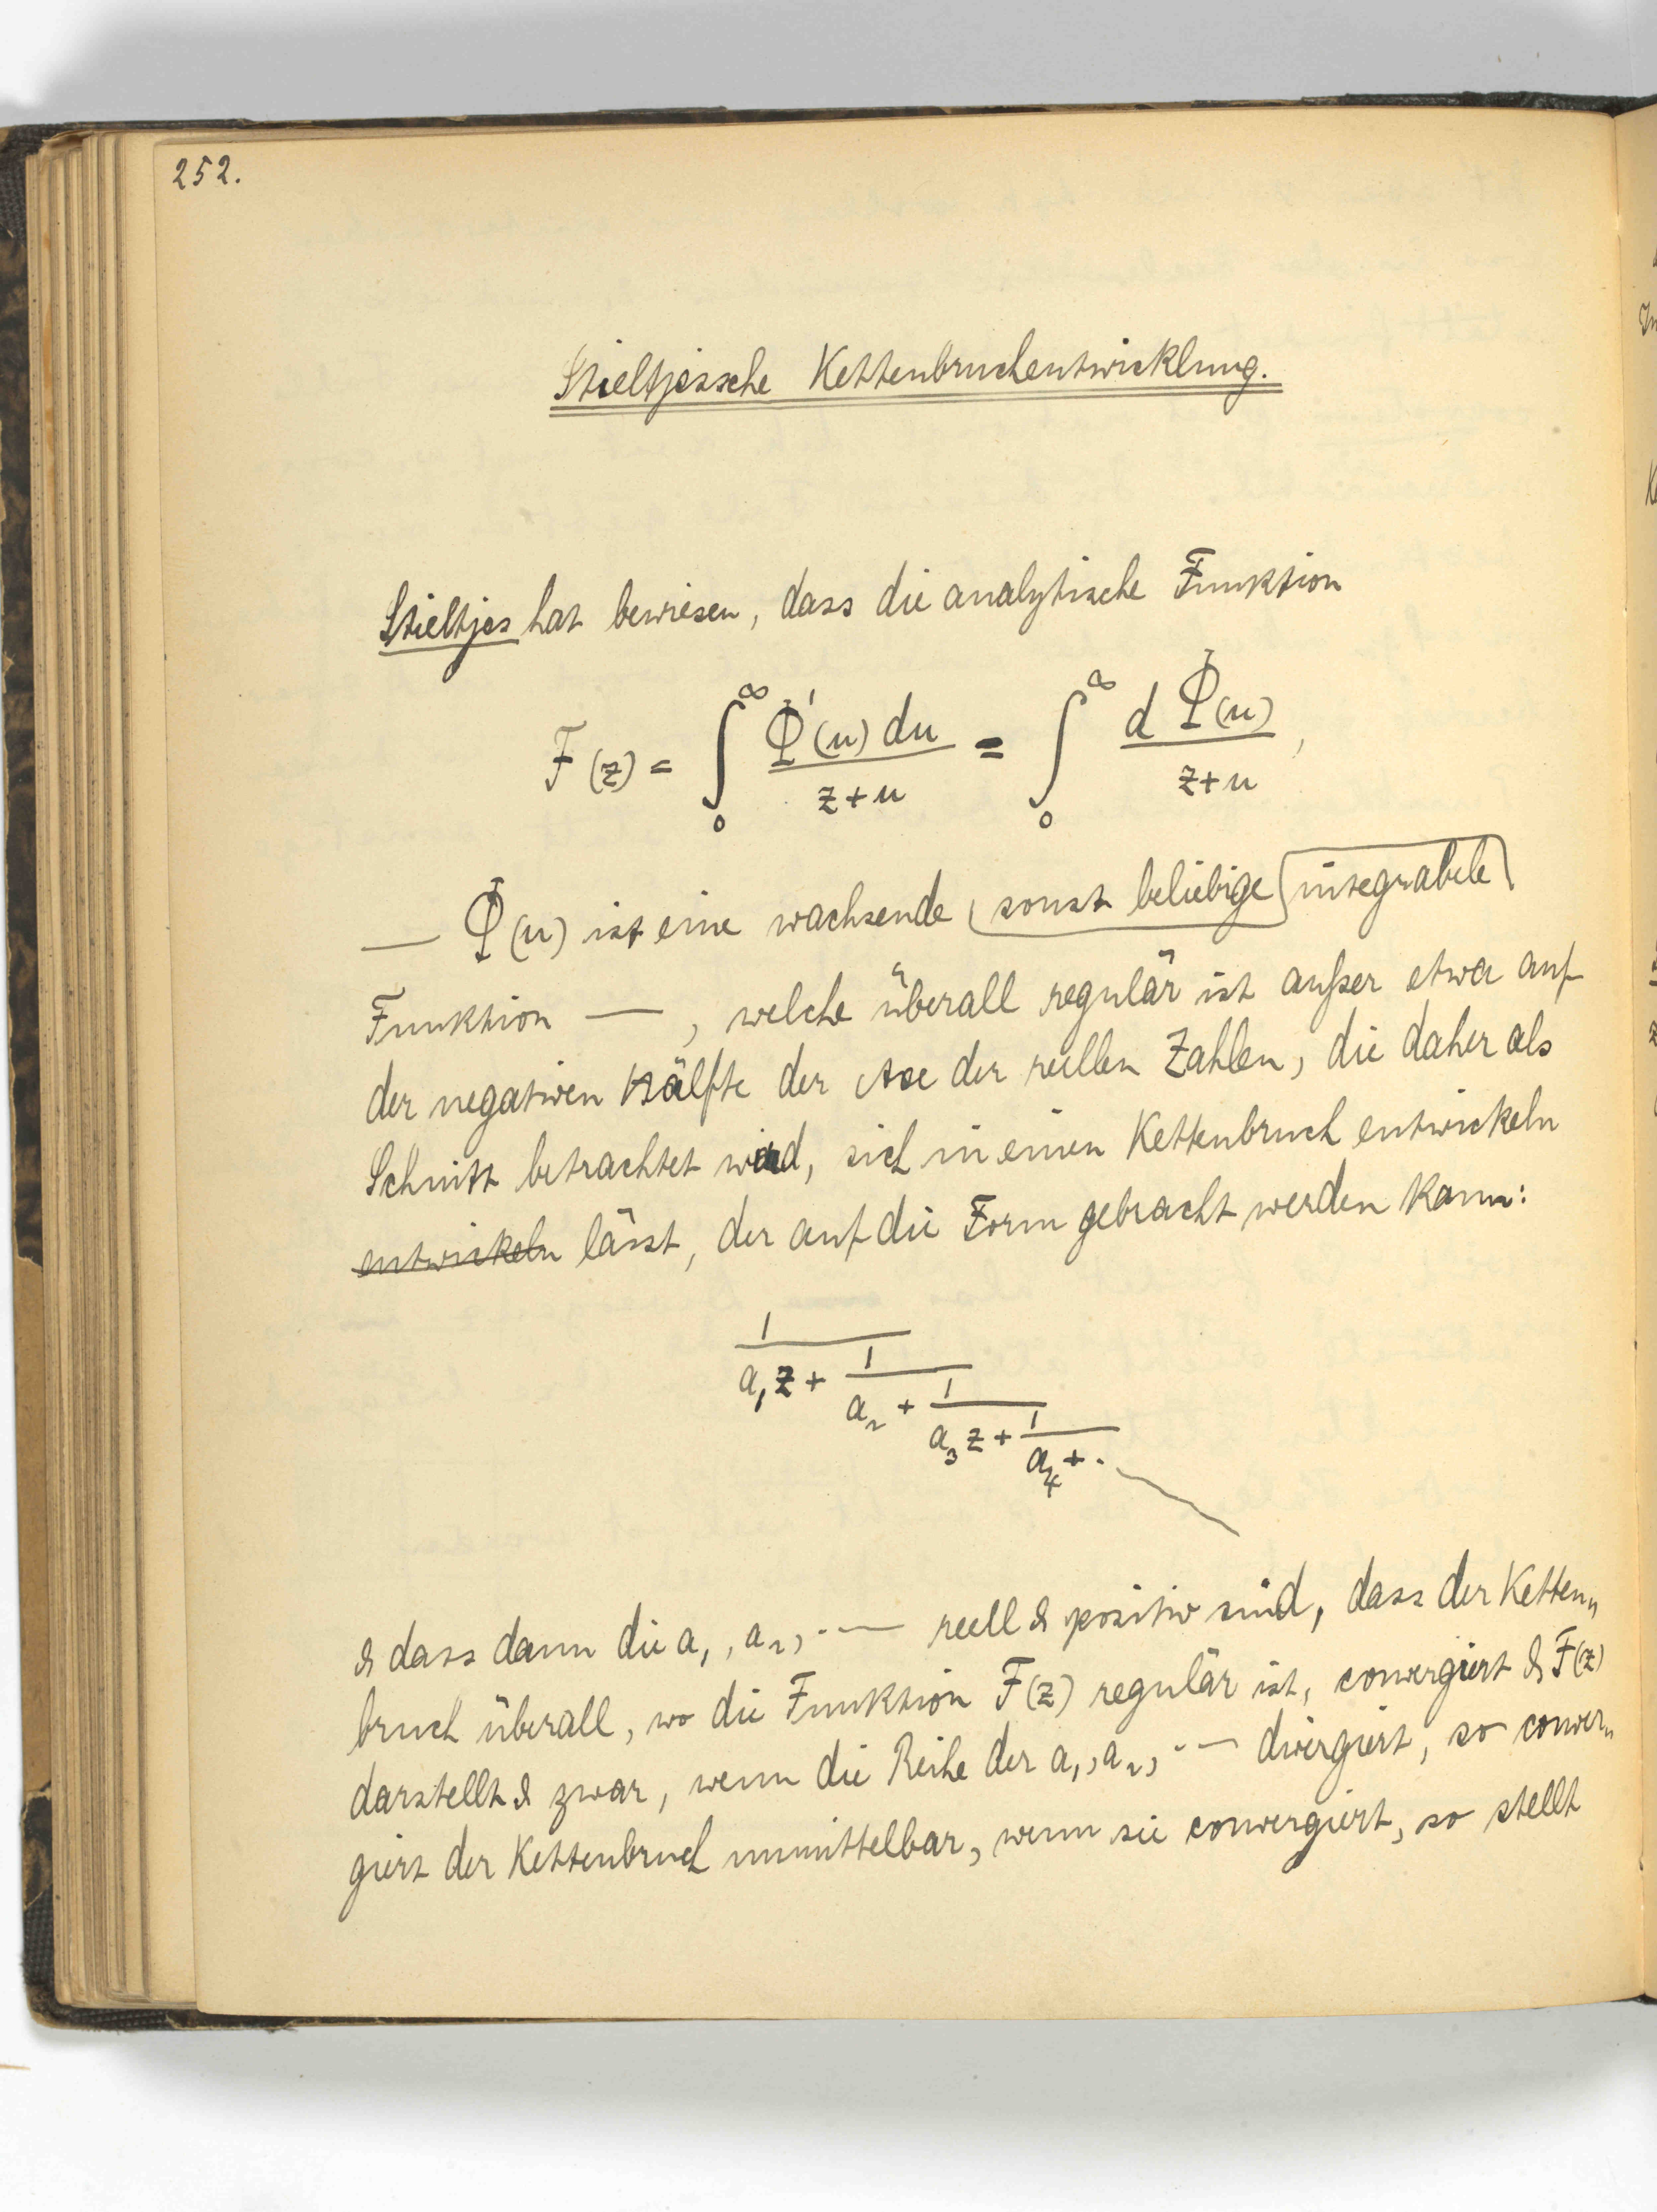 252.
Stieltjessche Kettenbruchentwicklung.
Stieltjes hat bewiesen, dass die analytische Funktion
F(z) = ∫₀^∞ Φ'(u) du / (z+u) = ∫₀^∞ d Φ(u) / (z+u),
— Φ(u) ist eine wachsende sonst beliebige integrabele
Funktion —, welche überall regulär ist außer etwa auf
der negativen Hälfte der Axe der reellen Zahlen, die daher als
Schnitt betrachtet wird, sich in einen Kettenbruch entwickeln
entwickeln lässt, der auf die Form gebracht werden kann:
1
a₁z + 1
a₂ + 1
a₃z + 1
a₄ + .
& dass dann die a₁, a₂, ·— reell & positiv sind, dass der Ketten„
bruch überall, wo die Funktion F(z) regulär ist, convergiert & F(z)
darstellt & zwar, wenn die Reihe der a₁, a₂, ·— divergiert, so conver„
giert der Kettenbruch unmittelbar, wenn sie convergiert, so stellt